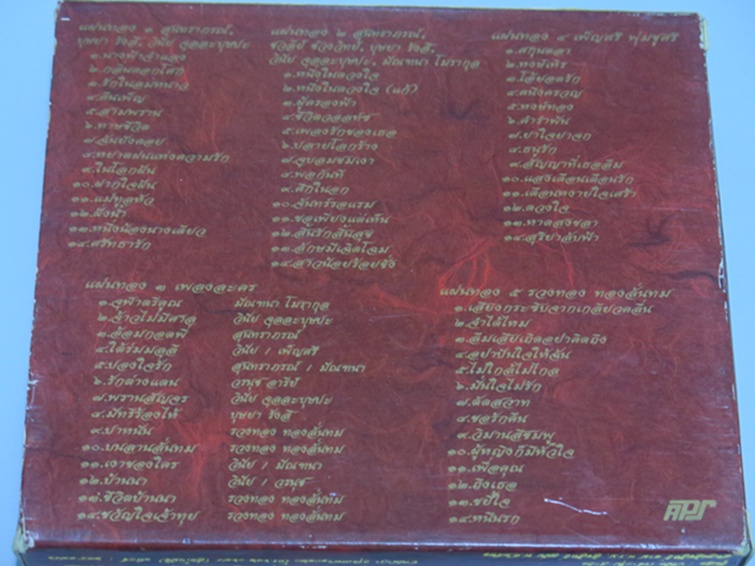 แผ่นทอง ๑ สุนทราภรณ์,
บุษยา รังสี, วินัย จุลละบุษปะ
๑.นางฟ้าจำแลง
๒.กลิ่นดอกโศก
๓.รักในลมหนาว
๔.คืนเพ็ญ
๕.สามพราน
๖.ทาษชีวิต
๗.ฉันยังคอย
๘.หยาดฝนแห่งความรัก
๙.ในโลกฝัน
๑๐.ฝากใจฝัน
๑๑.แม่ทูลหัว
๑๒.ฝั่งน้ำ
๑๓.หนึ่งน้องนางเดียว
๑๔.ศรัทธารัก
แผ่นทอง ๒ สุนทราภรณ์,
ชวลีย์ ช่วงวิทย์, บุษยา รังสี,
วินัย จุลละบุษปะ, มัณฑนา โมรากุล
๑.หนึ่งในดวงใจ
๒.หนึ่งในดวงใจ (แก้)
๓.ผู้ครองฟ้า
๔.ชีวิตวอลท์ซ
๕.เพลงรักของเธอ
๖.ปลายโลกร้าง
๗.จูบลมชมเงา
๘.พอกันที
๙.ศึกในอก
๑๐.จันทร์รอแรม
๑๑.ขอเพียงแต่เห็น
๑๒.สิ้นรักสิ้นสุข
๑๓.ลักษมีเฉิดโฉม
๑๔.สาวน้อยร้อยชั่ง
แผ่นทอง ๔ เพ็ญศรี พุ่มชูศรี
๑.สกุนตลา
๒.หงษ์เหิร
๓.โอ้ยอดรัก
๔.คนึงครวญ
๕.หงษ์ทอง
๖.คำรำพัน
๗.ยาใจยาจก
๘.ธนูรัก
๙.สัญญาที่เธอลืม
๑๐.แสงเดือนเตือนรัก
๑๑.เดือนหงายใจเศร้า
๑๒.ดวงใจ
๑๓.หาดสงขลา
๑๔.สุริยาลับฟ้า
แผ่นทอง ๓ เพลงละคร
๑.จุฬาตรีคูณ มัณฑนา โมรากุล
๒.จ้าวไม่มีศาล วินัย จุลละบุษปะ
๓.อ้อมกอดพี่ สุนทราภรณ์
๔.ใต้ร่มมลุลี วินัย / เพ็ญศรี
๕.ปองใจรัก สุนทราภรณ์ / มัณฑนา
๖.รักต่างแดน วรนุช อารีย์
๗.พรานสัญจร วินัย จุลละบุษปะ
๘.มัทรีร้องไห้ บุษยา รังสี
๙.ปาหนัน รวงทอง ทองลั่นทม
๑๐.บนลานลั่นทม รวงทอง ทองลั่นทม
๑๑.เงาของใคร วินัย / มัณฑนา
๑๒.บ้านนา วินัย / วรนุช
๑๓.ชีวิตบ้านนา รวงทอง ทองลั่นทม
๑๔.ขวัญใจเจ้าทุย รวงทอง ทองลั่นทม
แผ่นทอง ๕ รวงทอง ทองลั่นทม
๑.เสียงกระซิบจากเกลียวคลื่น
๒.จำได้ไหม
๓.ลืมเสียเถิดอย่าคิดถึง
๔.อย่าปันใจให้ฉัน
๕.ไม่ใกล้ไม่ไกล
๖.มั่นใจไม่รัก
๗.ตัดสวาท
๘.ขอรักคืน
๙.วิมานสีชมพู
๑๐.ผู้หญิงก็มีหัวใจ
๑๑.เพื่อคุณ
๑๒.ถึงเธอ
๑๓.ขยี้ใจ
๑๔.หนี้รัก